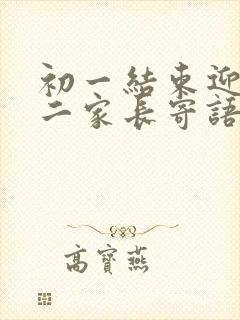 初一結束迎
二家長寄語
高寶燕